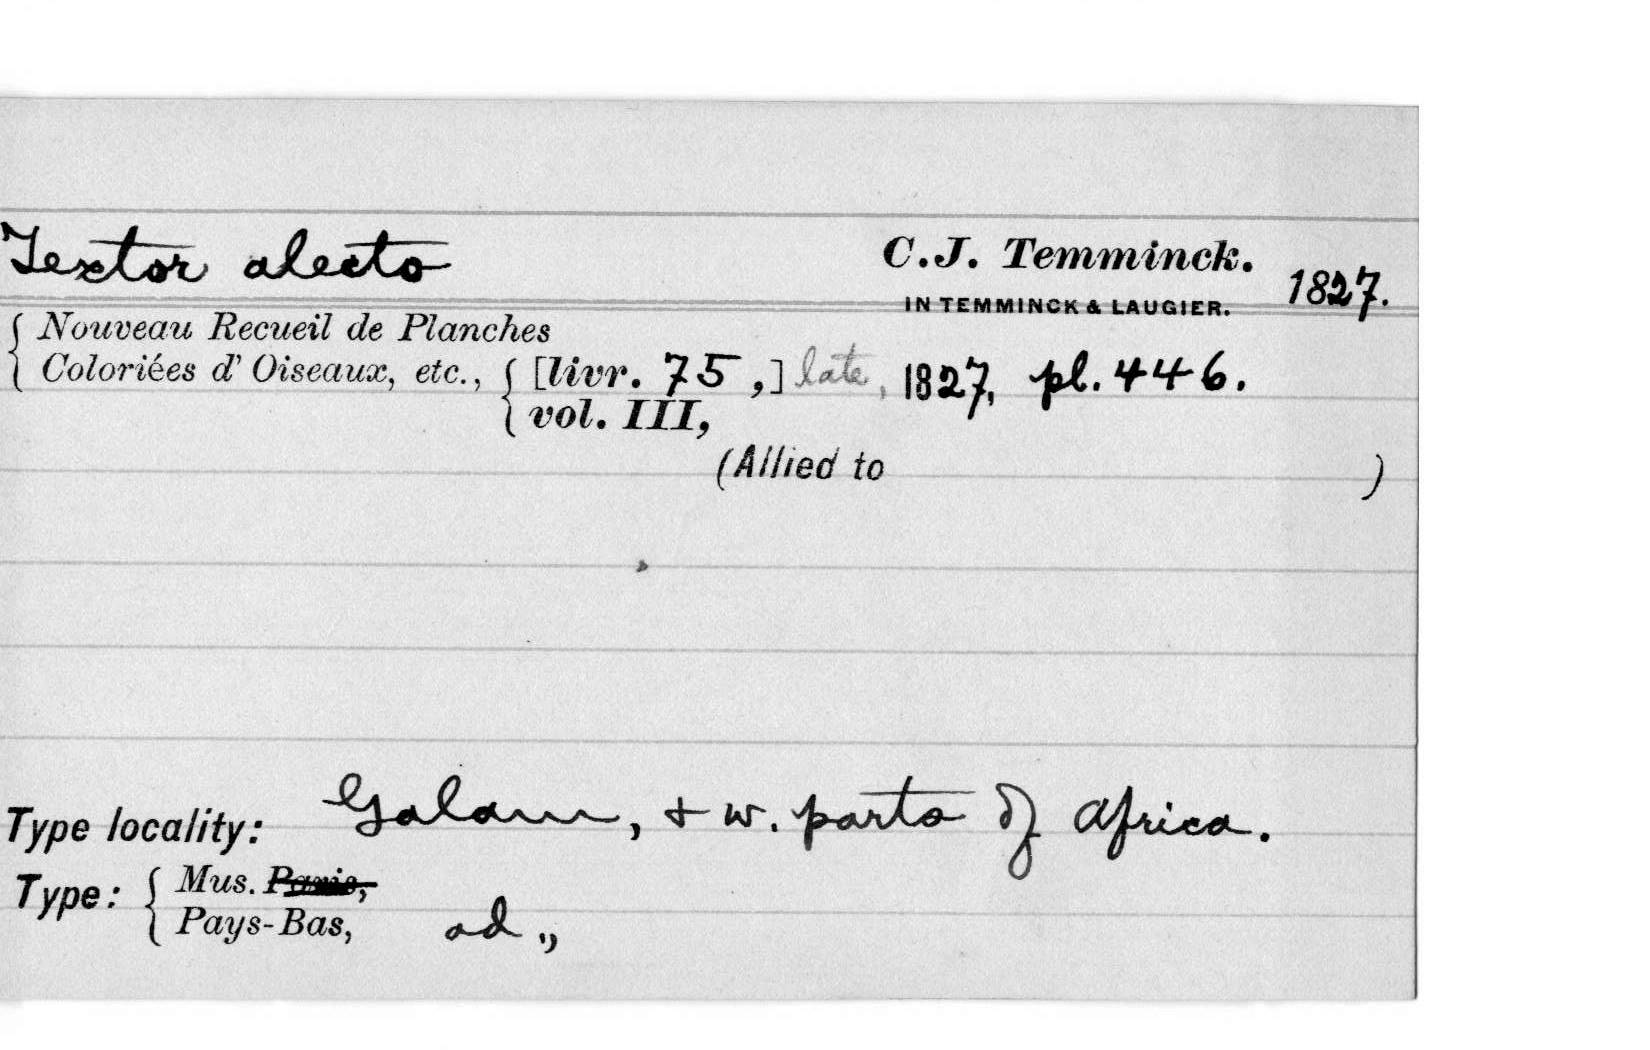 Textor alecto
C.J. Temminck.
IN TEMMINCK & LAUGIER.
1827.
Nouveau Recueil de Planches
Coloriées d' Oiseaux, etc., [livr. 75,] late, 1827, pl. 446.
vol. III,
(Allied to )
Type locality: Galam, & w. parts of Africa.
Type: Mus. Paris,
Pays-Bas, ad.,